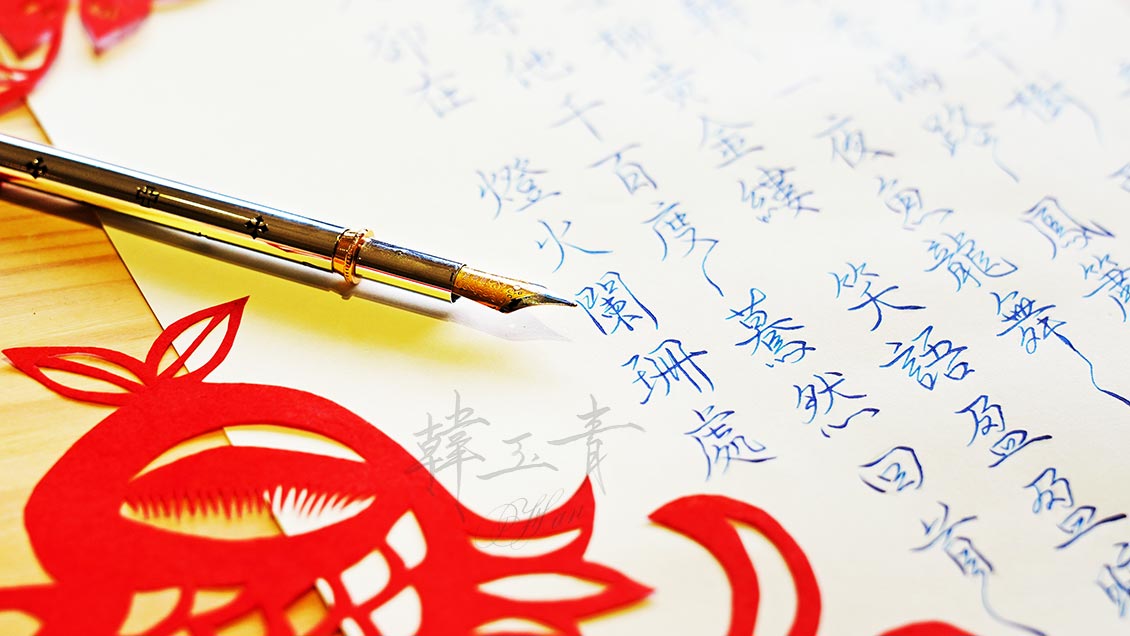 千樹
滿路鳳簫
一夜魚龍舞
黃金縷笑語盈盈
他千百度驀然回首
卻在燈火闌珊處
韓玉青